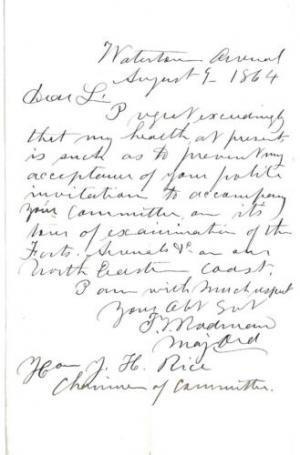 Watertown Arsenal
August 9 1864
Dear Sir
I regret exceedingly
that my health at present
is such as to prevent my
acceptance of your polite
invitation to accompany
your Committee on its
tour of examination of the
Forts, Arsenals &c on our
North Eastern coast.
I am with much respect
Your Obt Svt
T. J. Rodman
Maj Ord
Hon J. H. Rice
Chairman of Committee.